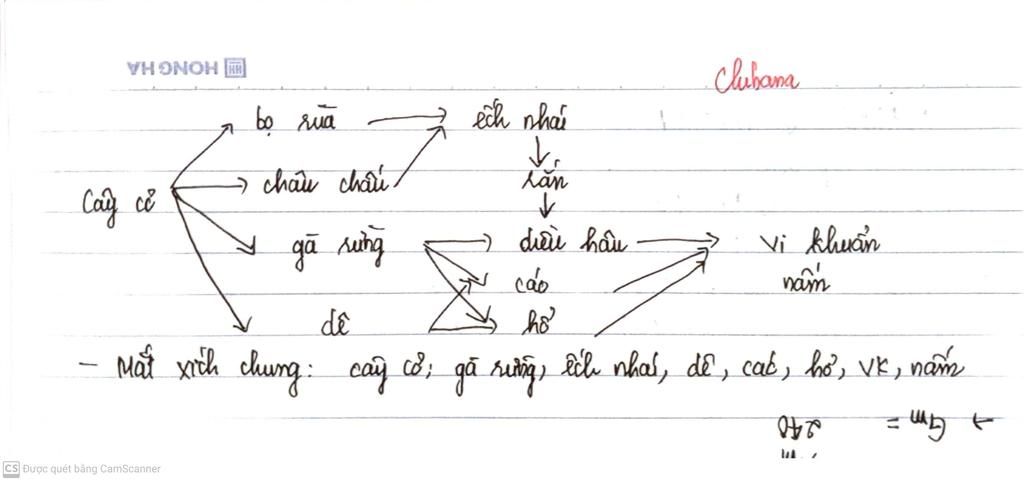 HONG HA
Clubana
bọ rùa → ếch nhái
↓
Cây cỏ
châu chấu
rắn
↓
gà rừng → diều hâu → vi khuẩn
cáo
nấm
dê → hổ
– Mắt xích chung: cây cỏ, gà rừng, ếch nhái, dê, cáo, hổ, VK, nấm
CS Được quét bằng CamScanner